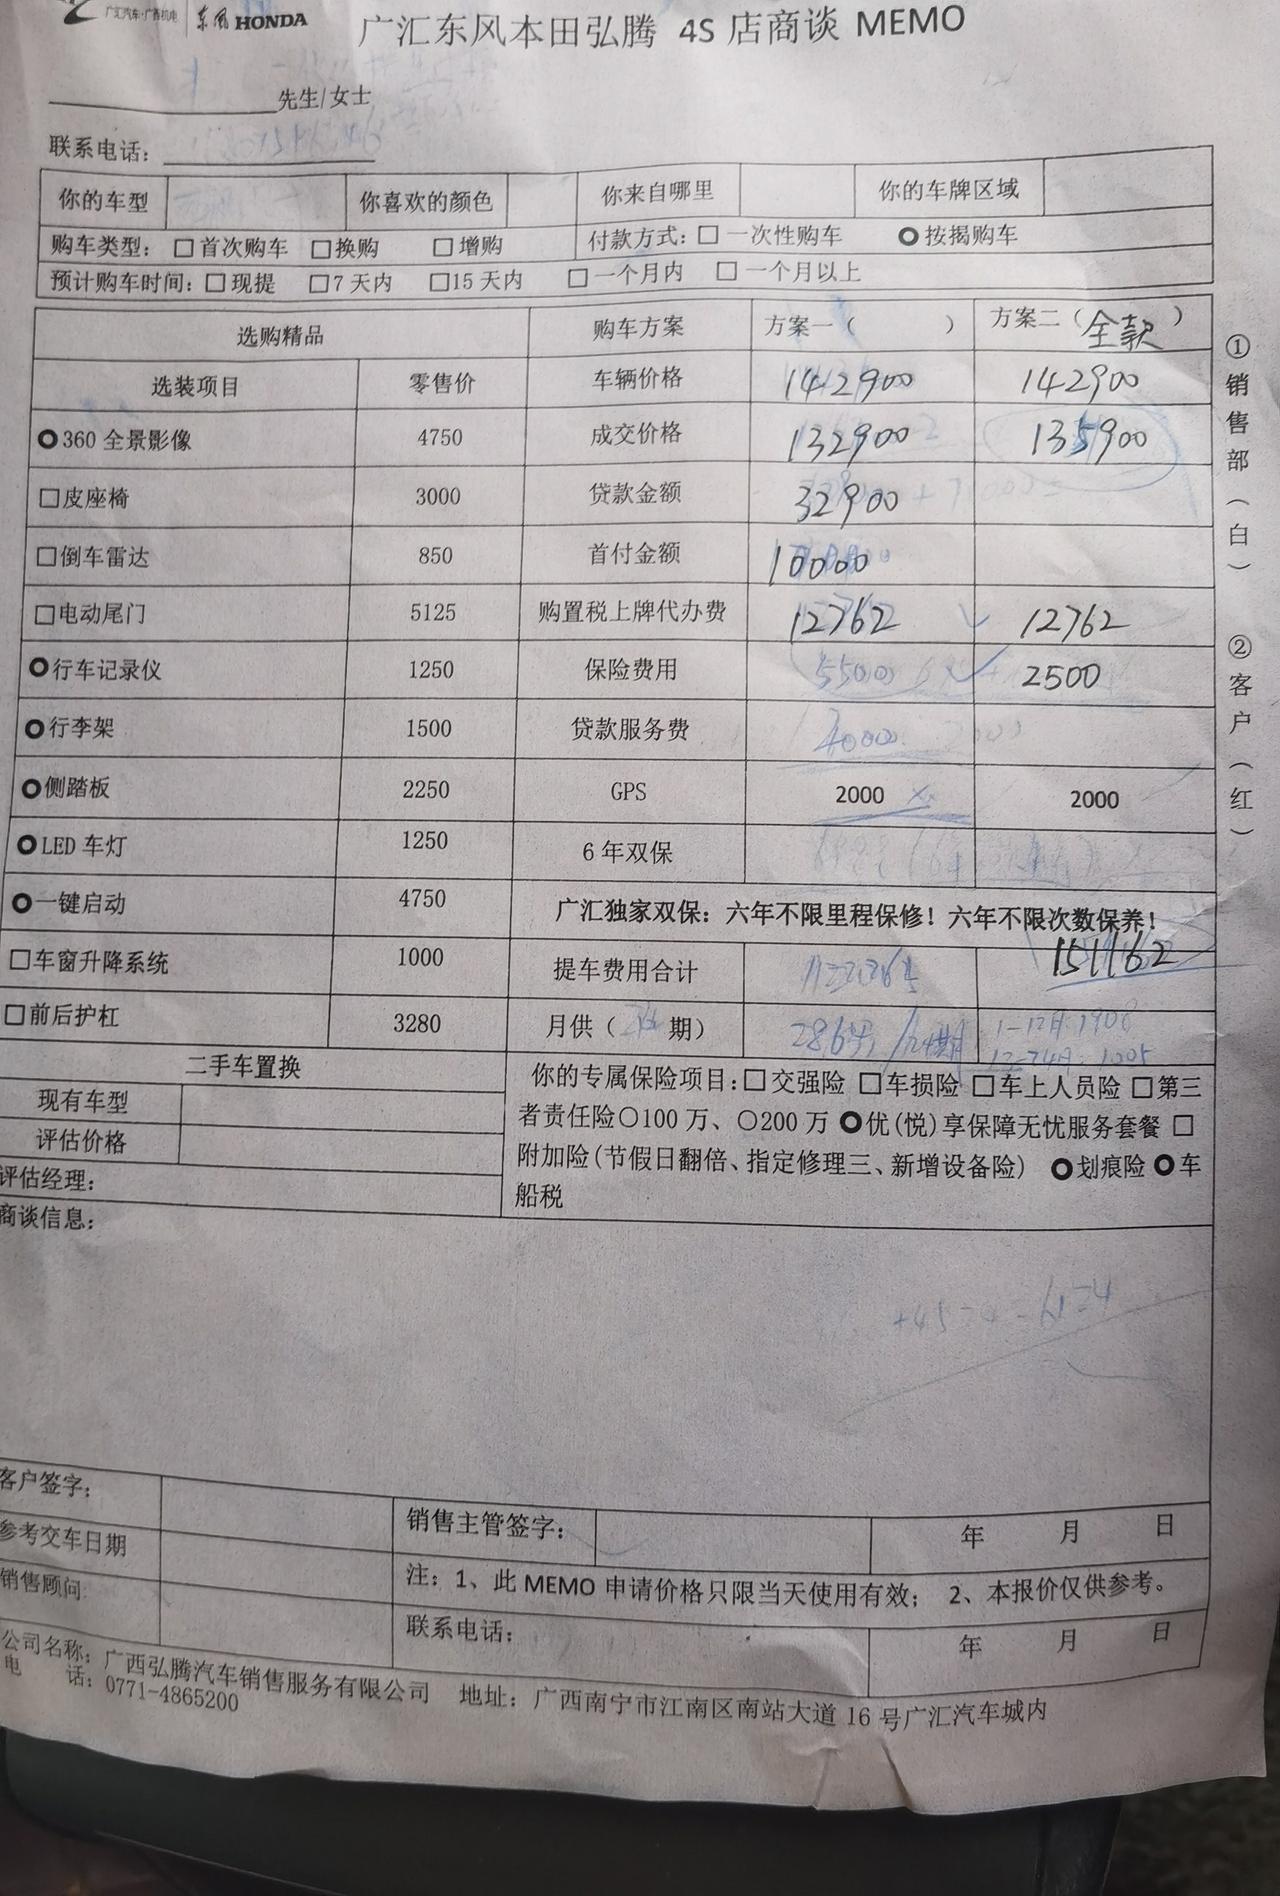 广汇汽车·广西机电 东风 HONDA 广汇东风本田弘腾 4S 店商谈 MEMO
先生/女士
联系电话：
你的车型 你喜欢的颜色 你来自哪里 你的车牌区域
购车类型： □ 首次购车 □换购 □增购 付款方式：□ 一次性购车 按揭购车
预计购车时间：□现提 □7 天内 □15 天内 □一个月内 □ 一个月以上
选购精品 购车方案 方案一（ ） 方案二（全款）
选装项目 零售价 车辆价格 142900 142900
360 全景影像 4750 成交价格 132900 135900
□皮座椅 3000 贷款金额 32900
□倒车雷达 850 首付金额 10000
□电动尾门 5125 购置税上牌代办费 12762 12762
行车记录仪 1250 保险费用 5500 2500
行李架 1500 贷款服务费
侧踏板 2250 GPS 2000 2000
LED 车灯 1250 6 年双保
一键启动 4750 广汇独家双保：六年不限里程保修！六年不限次数保养！
□车窗升降系统 1000 提车费用合计 151162
□前后护杠 3280 月供（ 期）
1-12月：1908
二手车置换
现有车型
评估价格
评估经理：
你的专属保险项目：□ 交强险 □车损险 □车上人员险 □第三
者责任险○100 万、○200 万 优(悦)享保障无忧服务套餐 □
附加险(节假日翻倍、指定修理三、新增设备险) 划痕险 车
船税
商谈信息：
客户签字：
销售主管签字： 年 月 日
参考交车日期
注：1、此 MEMO 申请价格只限当天使用有效； 2、本报价仅供参考。
销售顾问
联系电话： 年 月 日
公司名称：广西弘腾汽车销售服务有限公司 地址：广西南宁市江南区南站大道 16 号广汇汽车城内
电 话：0771-4865200
①销售部（白） ②客户（红）